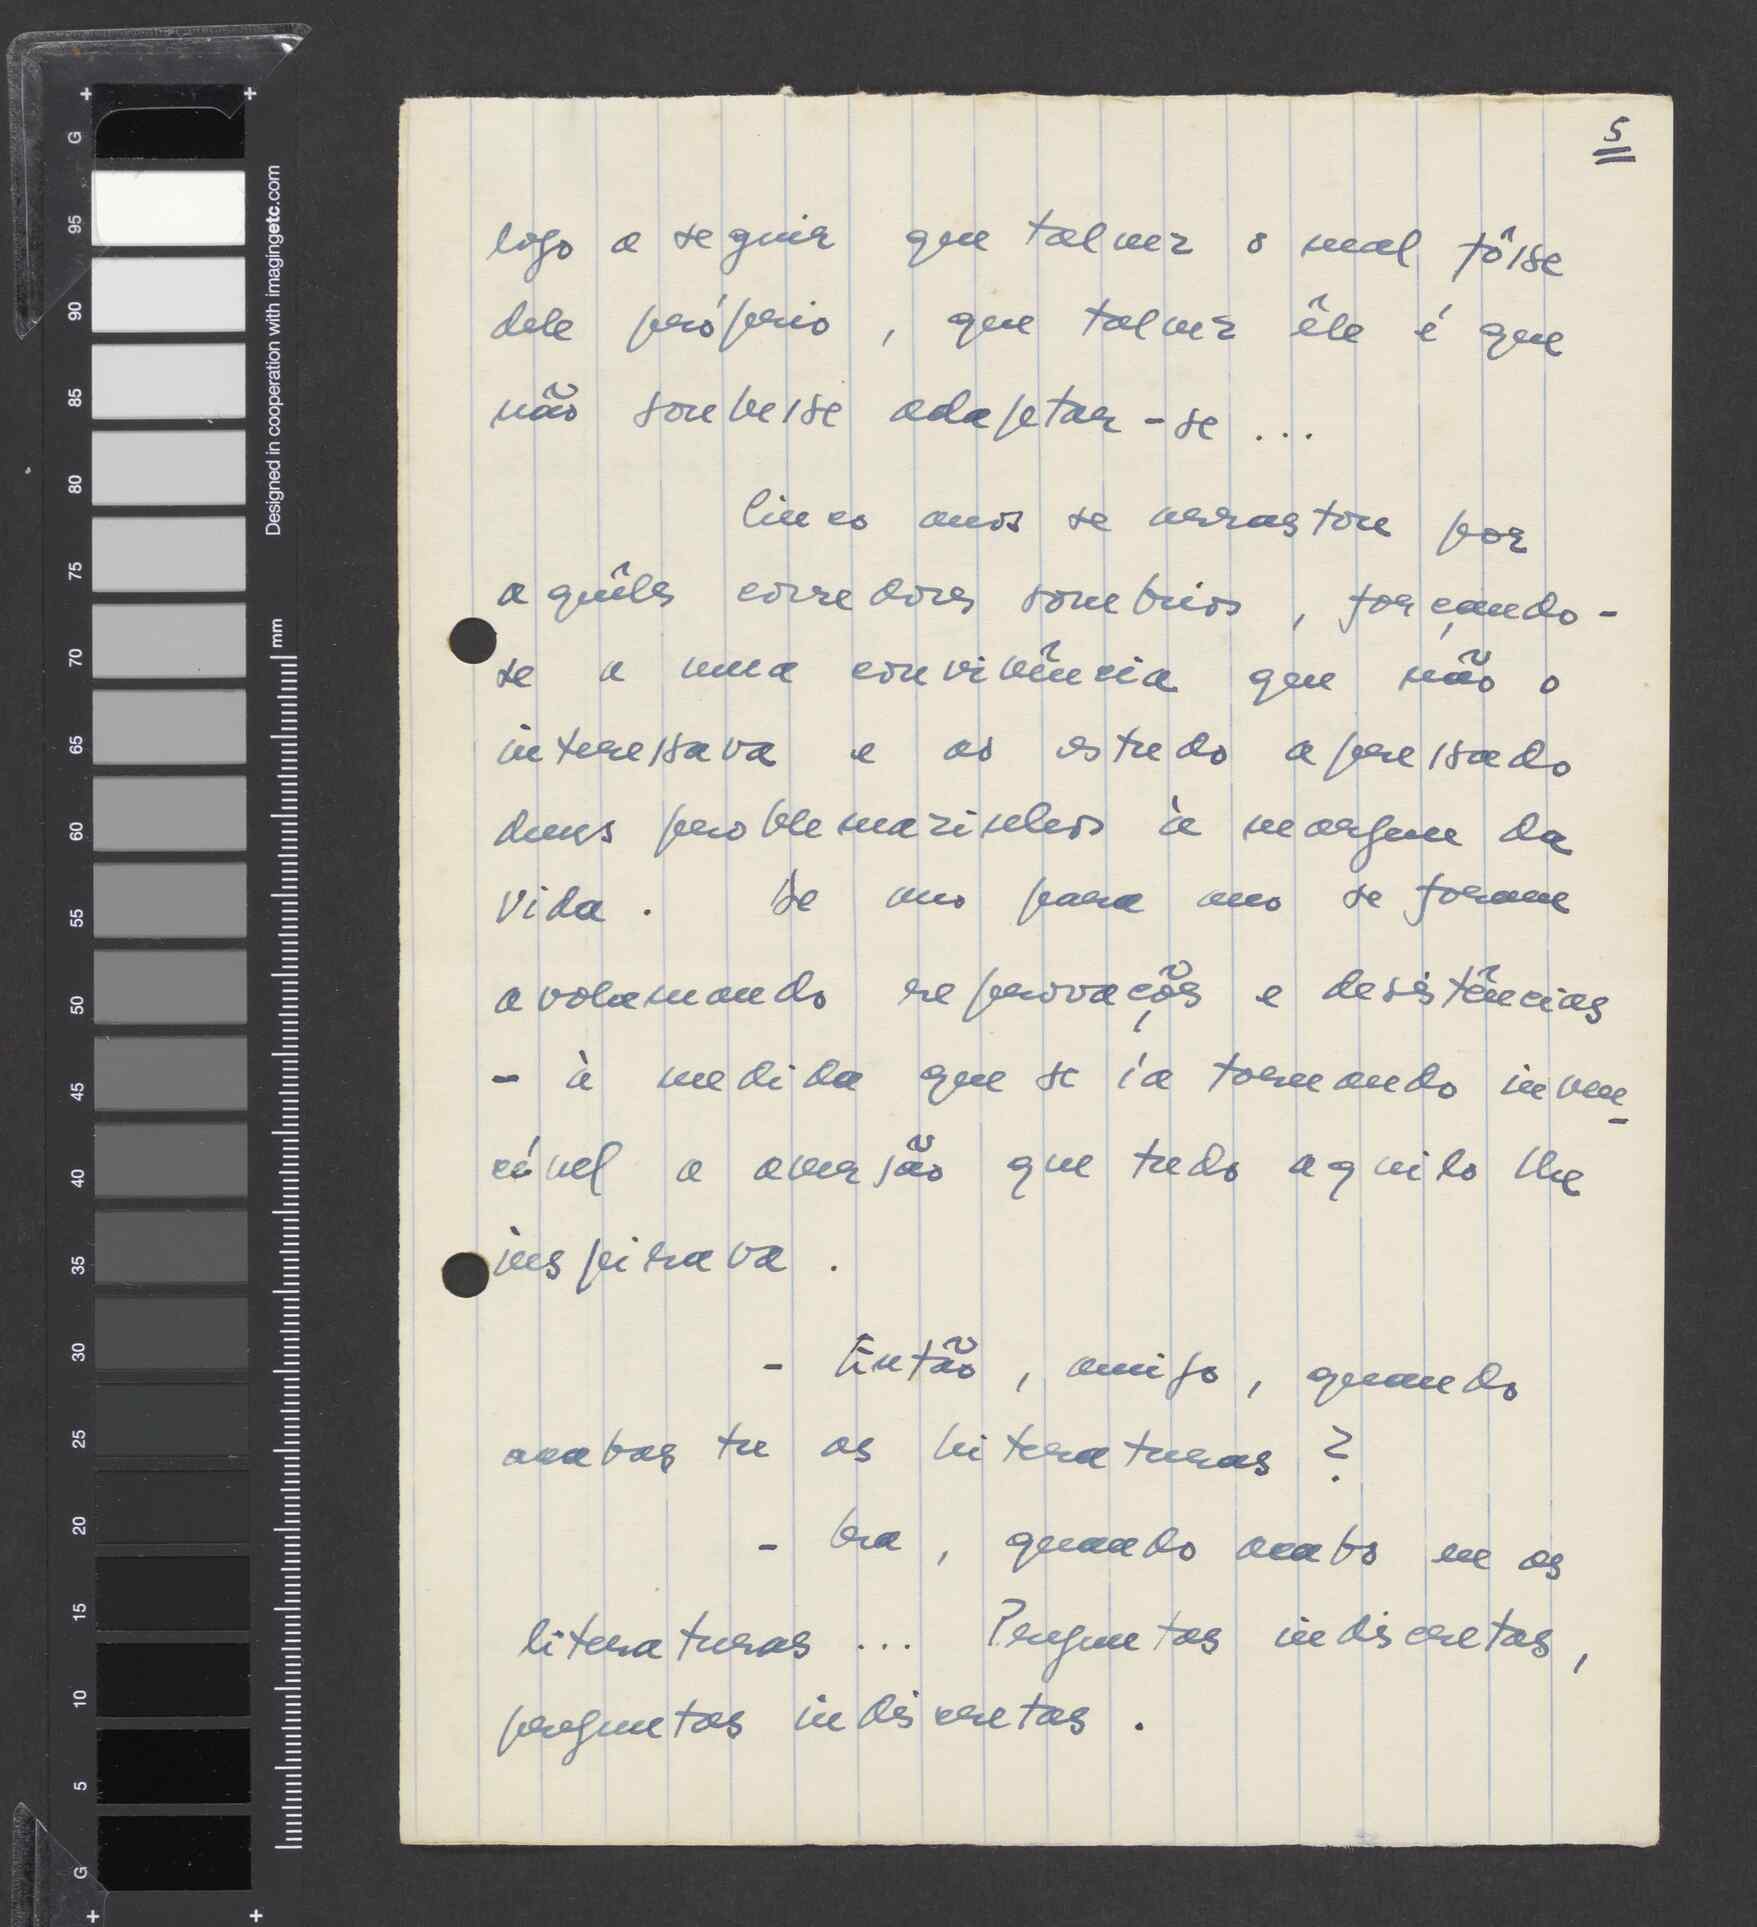 5
logo a seguir que talvez o mal fôsse
dele próprio, que talvez êle é que
não soubesse adaptar-se ...
Cinco anos se arrastou por
aquêles corredores sombrios, forçando-
se a uma convivência que não o
interessava e ao estudo apressado
duns problemazinhos à margem da
vida. De ano para ano se foram
avolumando reprovações e desistências
- à medida que se ía tornando inven-
cível a aversão que tudo aquilo lhe
inspirava.
- Então, amigo, quando
acabas tu as literaturas?
- Ora, quando acabo eu as
literaturas ... Perguntas indiscretas,
perguntas indiscretas.
Designed in cooperation with imagingetc.com
mm
G
95
90
85
80
75
70
65
60
55
50
45
40
35
30
25
20
15
10
5
G